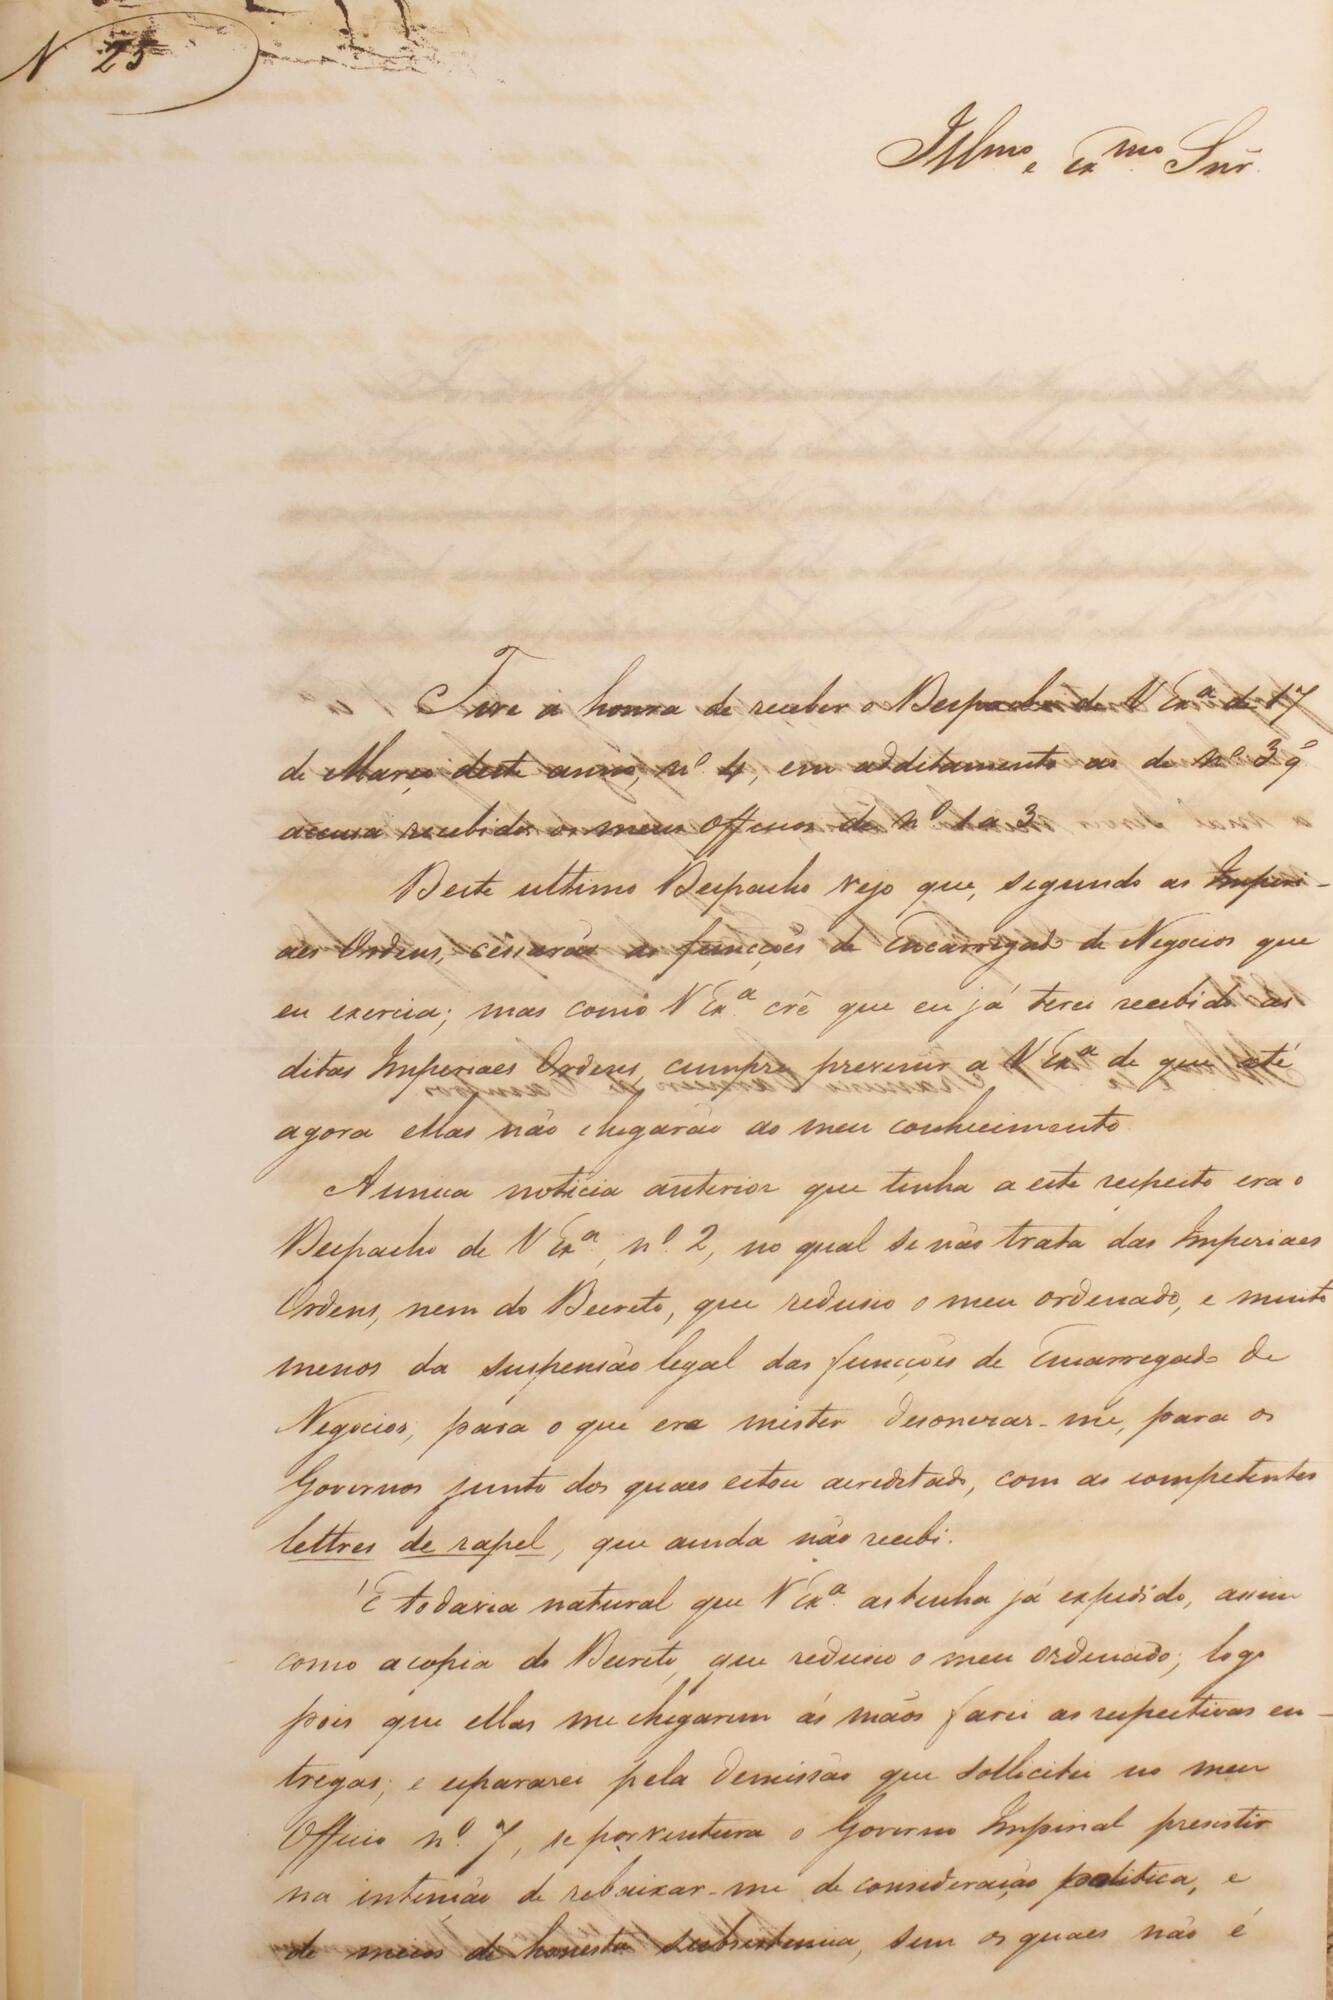 N 25
Illmo e Exmo Snr.
Tive a honra de receber o Despacho de V Exª de 17
de Março deste anno, nº 4, em additamento ao de nº 3 q̃
accusa recebidos os meus Officios de nº 1 a 3.
Deste ultimo Despacho vejo que, segundo as Imperi-
aes Ordens, cessarão as funcções de Encarregado de Negocios que
eu exercia; mas como V Exª crê que eu já terei recebido as
ditas Imperiaes Ordens, cumpre prevenir a V Exª de que até
agora ellas não chegarão ao meu conhecimento.
A unica noticia anterior que tinha a este respeito era o
Despacho de V Exª, nº 2, no qual se não trata das Imperiaes
Ordens, nem do Decreto, que redusio o meu ordenado, e muito
menos da suspensão legal das funcções de Encarregado de
Negocios, para o que era mister desonerar-me, para os
Governos junto dos quaes estou acreditado, com as competentes
lettres de rapel, que ainda não recebi.
É todavia natural que V Exª as tenha já expedido, assim
como a copia do Decreto, que redusio o meu ordenado; logo
pois que ellas me chegarem ás mãos farei as respectivas en-
tregas, e esperarei pela demissão que sollicitei no meu
Officio nº 7, se porventura o Governo Imperial presistir
na intenção de rebaixar-me de consideração politica, e
de meios de honesta subsistencia, sem os quaes não é